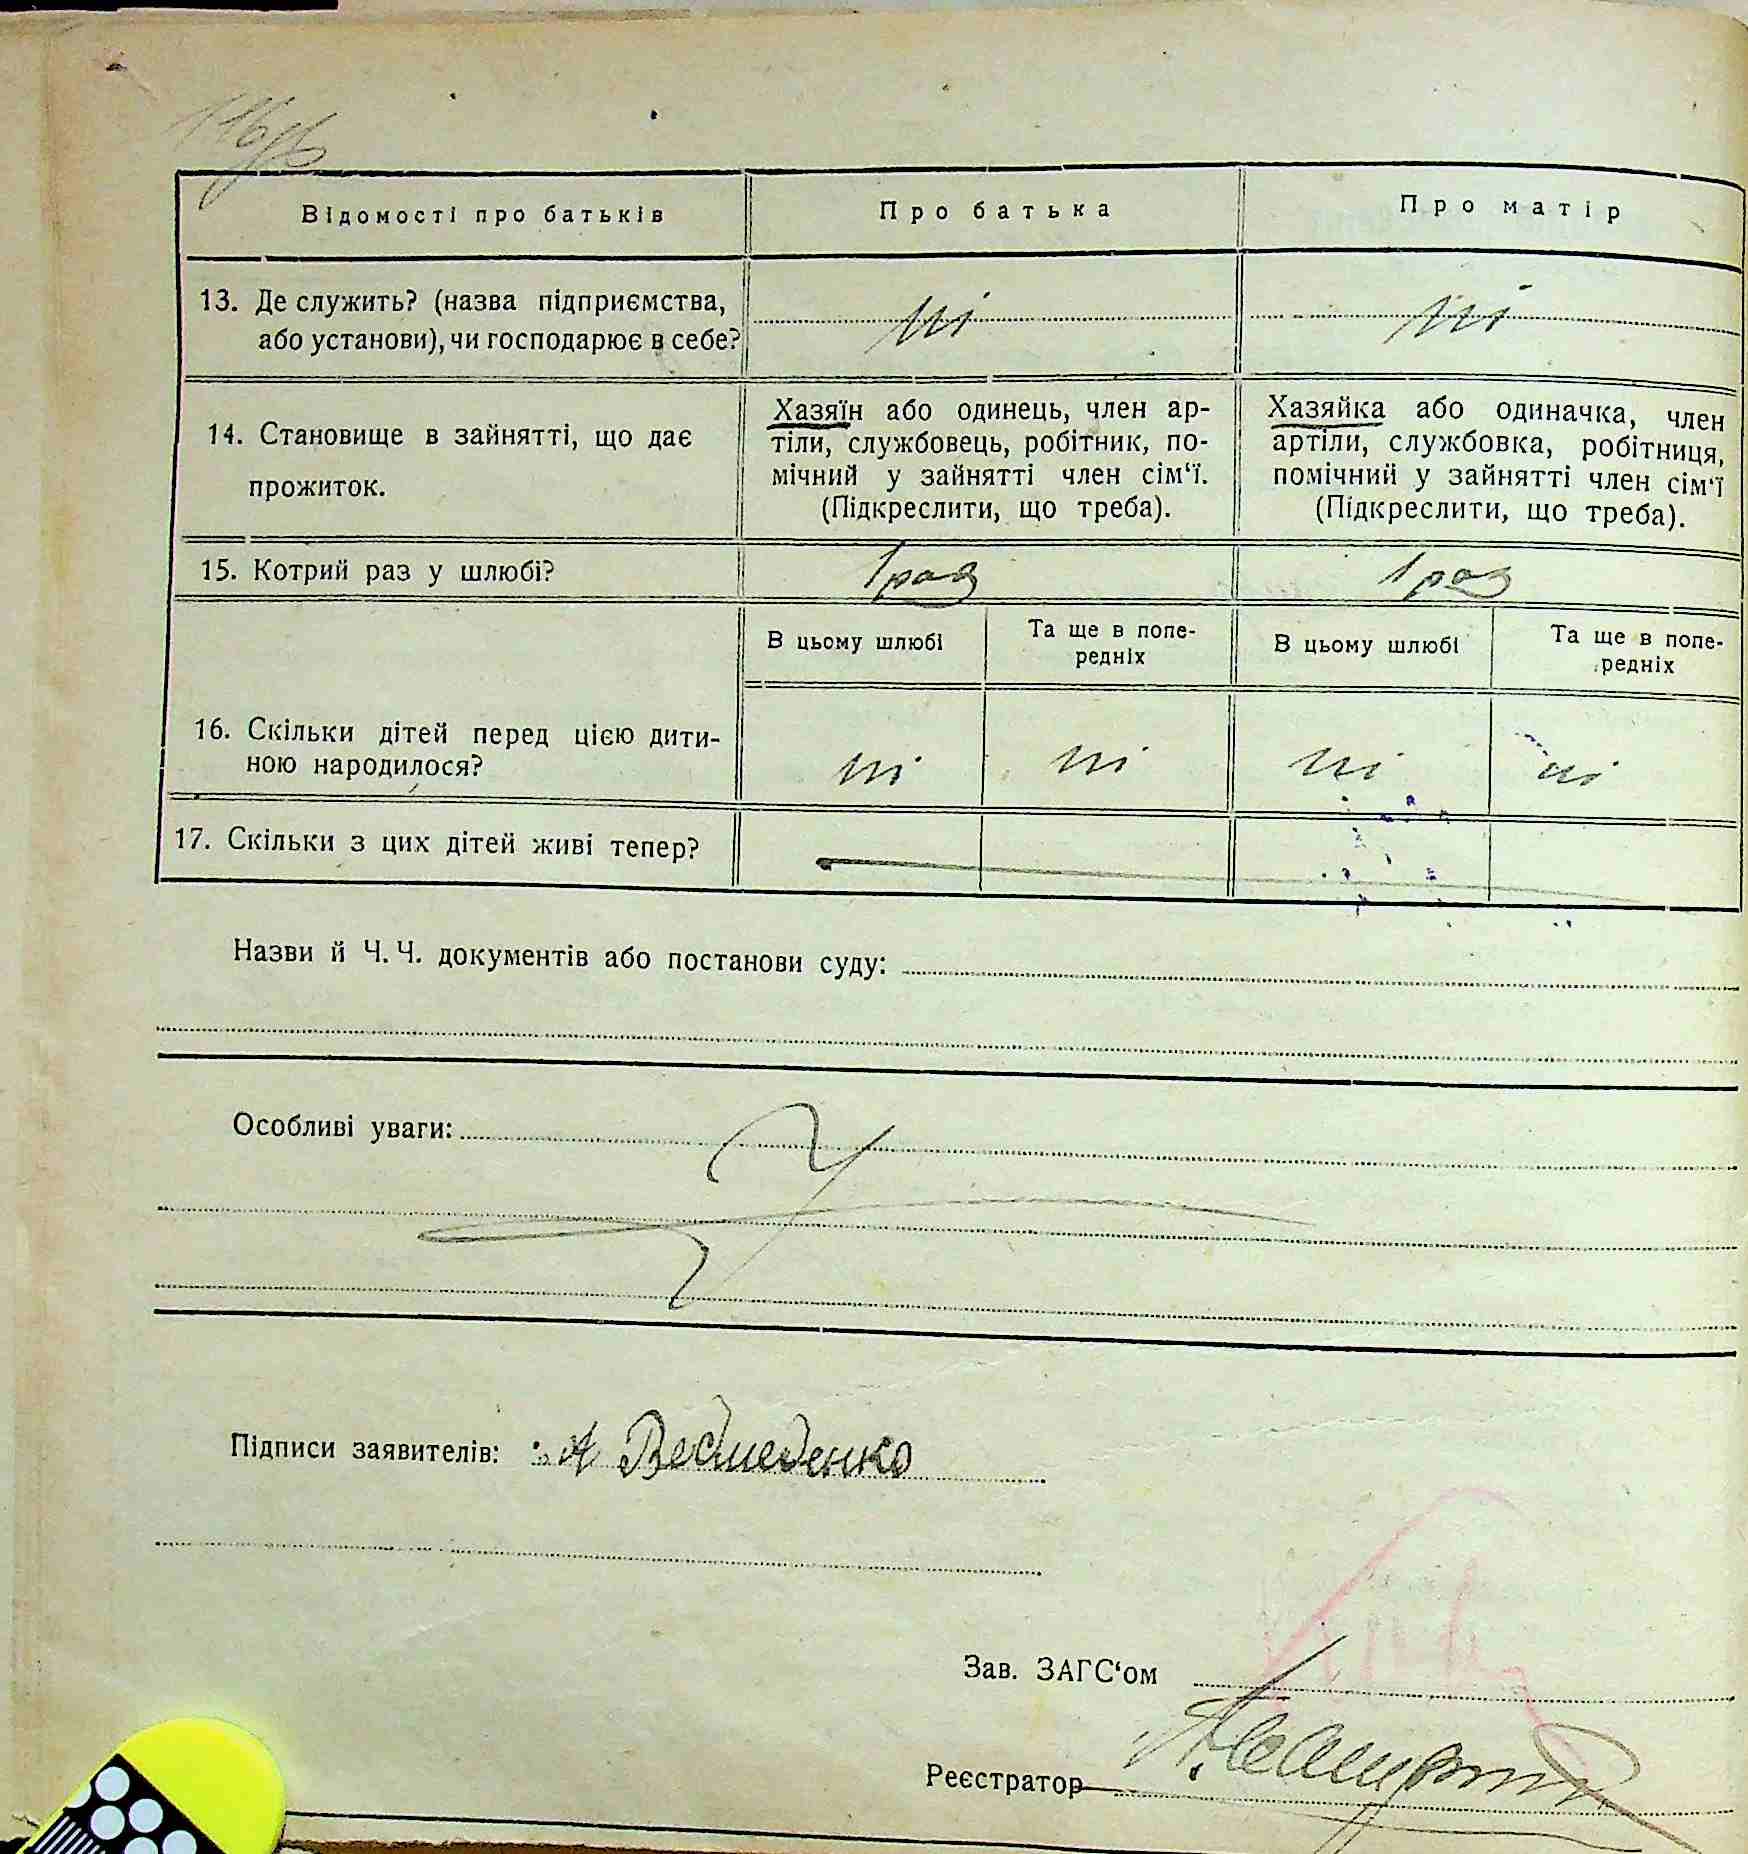 Відомості про батьків
Про батька
Про матір
13. Де служить? (назва підприємства,
або установи), чи господарює в себе?
ні
ні
14. Становище в зайнятті, що дає
прожиток.
Хазяїн або одинець, член ар-
тіли, службовець, робітник, по-
мічний у зайнятті член сім‘ї.
(Підкреслити, що треба).
Хазяйка або одиначка, член
артіли, службовка, робітниця,
помічний у зайнятті член сім‘ї
(Підкреслити, що треба).
15. Котрий раз у шлюбі?
1 раз
1 раз
В цьому шлюбі
Та ще в попе-
редніх
В цьому шлюбі
Та ще в попе-
редніх
16. Скільки дітей перед цією дити-
ною народилося?
ні
ні
ні
ні
17. Скільки з цих дітей живі тепер?
Назви й Ч. Ч. документів або постанови суду:
Особливі уваги:
Підписи заявителів: А Ведмеденко
Зав. ЗАГС‘ом
Реєстратор